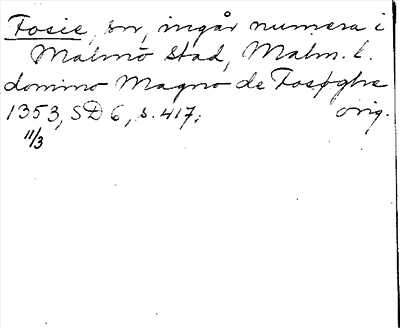 Fosie, sn, ingår numera i
Malmö stad, Malm. l.
domino Magno de Fosøghe
1353, SD 6, s. 417; orig.
11/3